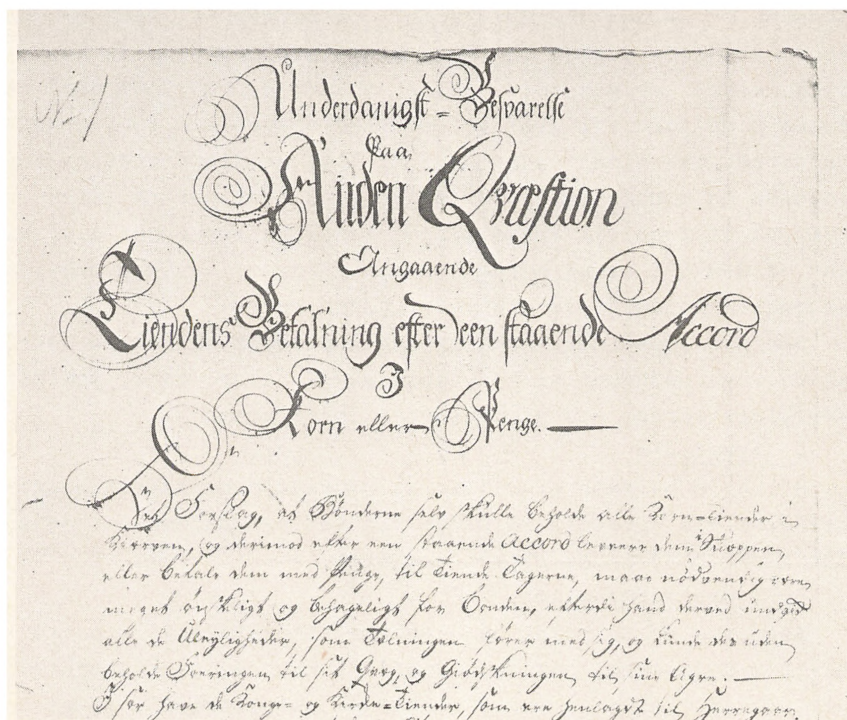 No 1
Underdanigst = Besvarelse
Paa
Anden Qvæstion
Angaaende
Tiendens Betalning efter deen staaende Accord
I
Korn eller Penge. —
Det Forslag, at Bønderne selv skulle beholde alle Korn=Tiender i
Kierven, og derimod efter een staaende Accord levere dem i Skieppen,
eller betale dem med Penge, til Tiende Tagerne, maae nødvendig være
meget ønskeligt og behageligt for Bonden, efterdi hand derved undgik
alle de Uleyligheder, som Tælningen fører med sig, og kunde desuden
beholde Foeringen til sit Qvæg, og Giødskningen til sine Agre. —
I sær have de Konge= og Kirke=Tiender, som ere henlagdt til Herregaar